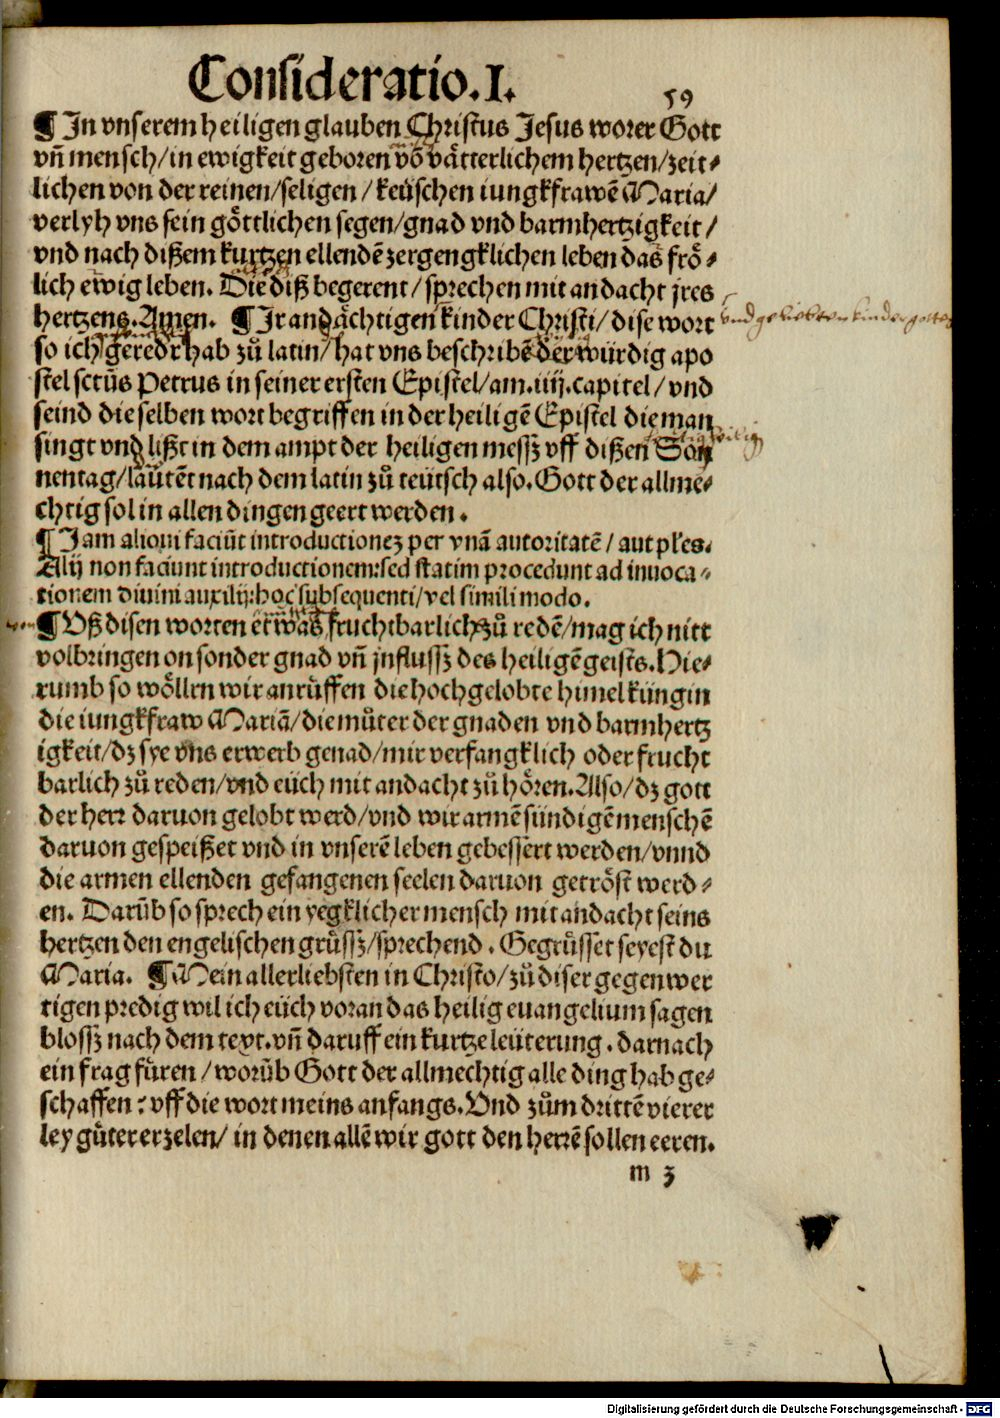 Consideratio.I.
59
¶ In vnserem heiligen glauben Christus Jesus worer Gott
vñ mensch/in ewigkeit geboren võ vätterlichem hertzen/zeit⸗
lichen von der reinen/seligen/keüschen iungkfrawẽ Maria/
verlyh vns sein göttlichen segen/gnad vnd barmhertzigkeit/
vnd nach dißem kurtzen ellendẽ zergengklichen leben das frö⸗
lich ewig leben. Die diß begerent/sprechen mit andacht jres
hertzens. Amen. ¶ Ir andächtigen kinder Christi/dise wort
vnd geliebten kinder gottes
so ich geredt hab zů latin/hat vns beschribẽ der würdig apo
stel sctũs Petrus in seiner ersten Epistel/am.iiij.capitel/vnd
seind die selben wort begriffen in der heiligẽ Epistel die man
singt vnd lißt in dem ampt der heiligen messz vff dißen Son
nentag/lautẽt nach dem latin zů teütsch also. Gott der allme⸗
chtig sol in allen dingen geert werden.
¶ Jam aliqui faciũt introductionez per vnã autoritatẽ/aut ples.
Alij non faciunt introductionem:sed statim procedunt ad inuoca⸗
tionem diuini auxilij:hoc subsequenti/vel simili modo.
¶ Vß disen worten etwas fruchtbarlichs zů redẽ/mag ich nitt
volbringen on sonder gnad vñ jnflussz des heiligẽ geists. Hie⸗
rumb so wöllen wir anrůffen die hochgelobte himel küngin
die iungkfraw Mariã/die můter der gnaden vnd barmhertz
igkeit/dz sye vns erwerb genad/mir verfangklich oder frucht
barlich zů reden/vnd eüch mit andacht zů hören. Also/dz gott
der herr daruon gelobt werd/vnd wir armẽ sündigẽ menschẽ
daruon gespeißet vnd in vnserẽ leben gebessert werden/vnnd
die armen ellenden gefangenen seelen daruon getröst werd⸗
en. Darũb so sprech ein yegklicher mensch mit andacht seins
hertzen den engelischen grůssz/sprechend. Gegrůsset seyest du
Maria. ¶ Mein allerliebsten in Christo/zů diser gegenwer
tigen predig wil ich eüch voran das heilig euangelium sagen
blossz nach dem text. vñ daruff ein kurtze leüterung. darnach
ein frag füren/worũb Gott der allmechtig alle ding hab ge⸗
schaffen: vff die wort meins anfangs. Vnd zům drittẽ vierer
ley gůter erzelen/in denen allẽ wir gott den herrẽ sollen eeren.
m 3
Digitalisierung gefördert durch die Deutsche Forschungsgemeinschaft - DFG